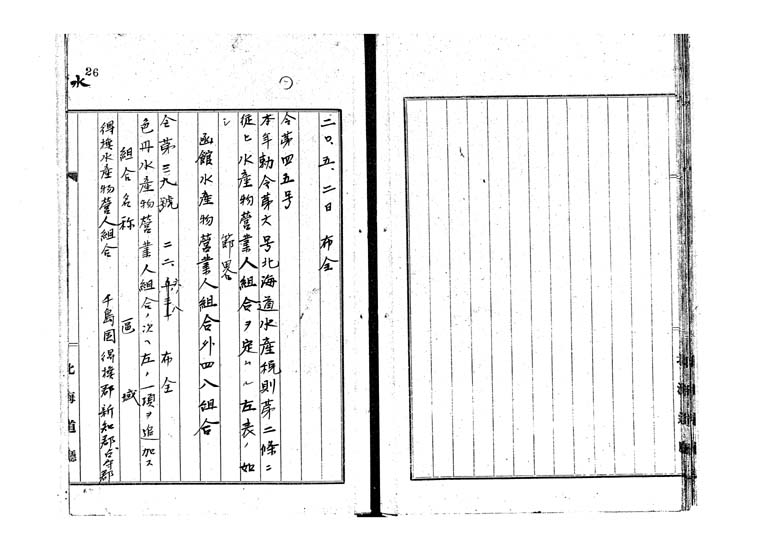 26
水
二〇、五、二日 布令
令第四五号
本年勅令第六号北海道水産税則第二條ニ
従ヒ水産物営業人組合ヲ定ムル左表ノ如
シ 節畧
函館水産物営業人組合外四八組合
令第三九號 二二、 布令
色丹水産物営業人組合ノ次ヘ左ノ一項ヲ追加ス
組合名称 區域
得撫水産物営人組合 千島国得撫郡新知郡占守郡
北海道廳